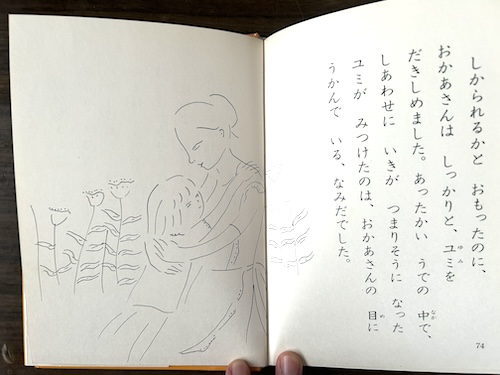 しかられるかと おもったのに、
おかあさんは しっかりと、ユミを
だきしめました。あったかい うでの 中で、
しあわせに いきが つまりそうに なった
ユミが みつけたのは、おかあさんの 目に
うかんで いる、なみだでした。
74